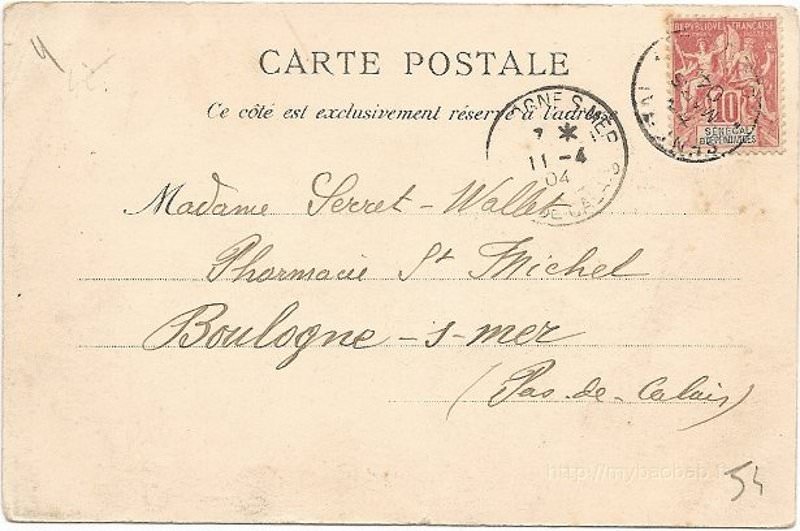 CARTE POSTALE
Ce côté est exclusivement réservé à l'adresse
RÉPUBLIQUE FRANÇAISE
10
SÉNÉGAL
ET DÉPENDANCES
OGNE S MER
7 *
11 - 4
04
DE-CALAIS
Madame Serret-Wallet
Pharmacie St Michel
Boulogne-s-mer
(Pas-de-Calais)
54
http://mybaobab